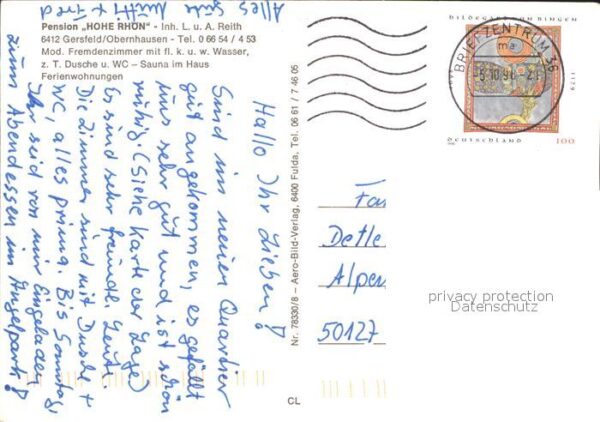 Pension „HOHE RHÖN" - Inh. L. u. A. Reith
6412 Gersfeld/Obernhausen - Tel. 0 66 54 / 4 53
Mod. Fremdenzimmer mit fl. k. u. w. Wasser,
z. T. Dusche u. WC – Sauna im Haus
Ferienwohnungen
Hallo Ihr Lieben!
Sind im neuen Quartier
gut angekommen, es gefällt
uns sehr gut und ist schön
ruhig. (Siehe Karte der Lage)
Es sind sehr freundl. Leute.
Die Zimmer sind mit Dusche +
WC, alles prima. Bis Sonntag,
Ihr seid von mir Eingeladen
zum Abendessen im
Alles
Gute
Mutti +
Nr. 78330/8 – Aero-Bild-Verlag, 6400 Fulda, Tel. 06 61 / 7 46 05
CL
HILDEGARD VON BINGEN
1179
DEUTSCHLAND
100
BRIEFZENTRUM 36
ma
Fam
Detle
Alpen
50127
privacy protection
Datenschutz